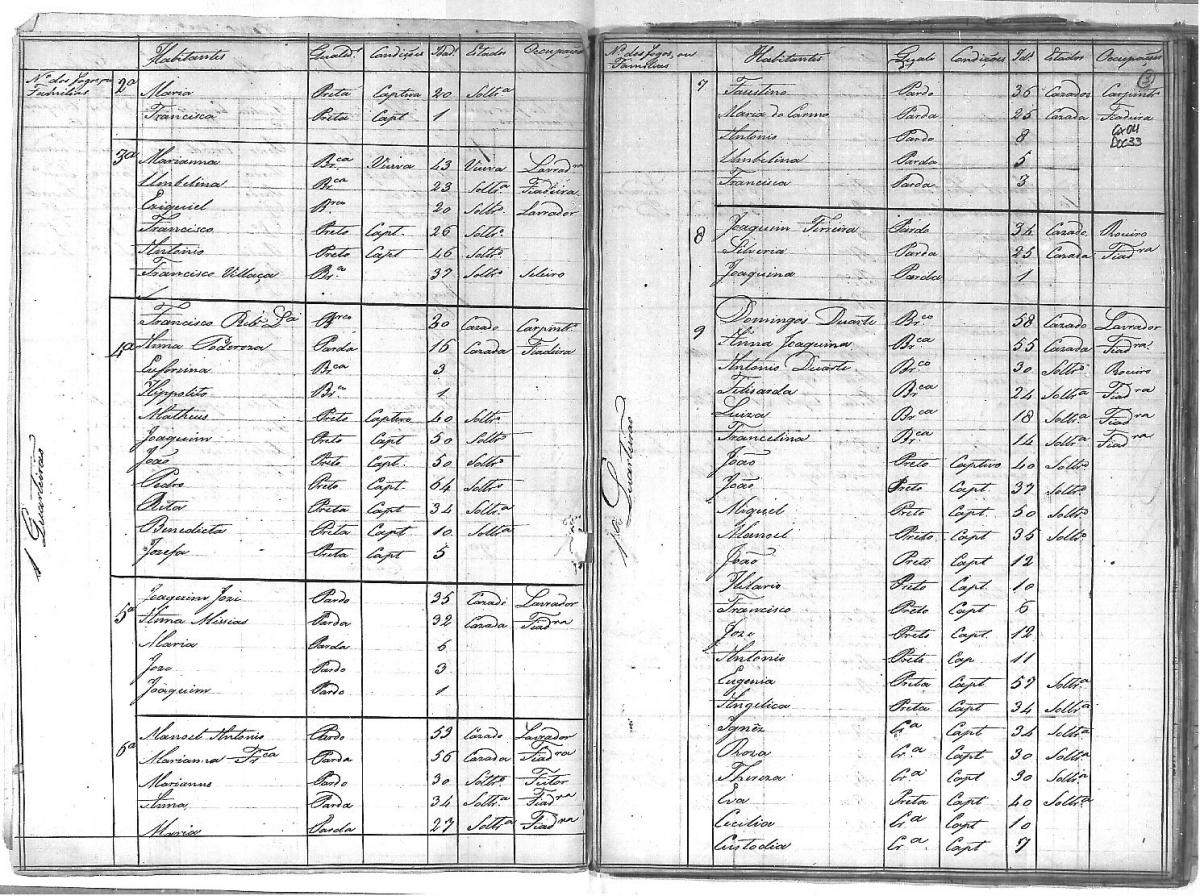 Nº. dos Fogos, ou Familias Habitantes Qualid.ˢ Condições Idad.ˢ Estados Occupações
2ª Maria Preta Captiva 20 Soltª
Francisca Preta Capt 1
3ª Marianna Brca Viuva 43 Viuva Lavradra
Umbelina Brca 23 Soltª Fiadeira
Eziquiel Brco 20 Solto. Lavrador
Francisco Preto Capt. 26 Solto.
Antonio Preto Capt 46 Solto.
Francisco Villaça Br.º 37 Solto Seleiro
4ª Francisco Ribº Brco 30 Cazado Carpintro
Anna Poderoza Parda 16 Cazada Fiadeira
Eufozina Brca 3
Hippolito Br.º 1
Matheus Preto Captivo 40 Solto.
Joaquim Preto Capt 50 Solto
João Preto Capt. 50 Solto
Pedro Preto Capt. 64 Solto
Rita Preta Capt 34 Soltª
Benedicta Preta Capt 10 Soltª
Jozefa Preta Capt 5
5ª Joaquim Joze Pardo 35 Cazado Lavrador
Anna Missias Parda 32 Cazada Fiadra
Maria Parda 6
Joze Pardo 3
Joaquim Pardo 1
6ª Manoel Antonio Pardo 53 Cazado Lavrador
Marianna Frca Parda 56 Cazada Fiadra
Marianno Pardo 30 Solto Feitor
Anna Parda 34 Soltª Fiadra
Maria Parda 27 Soltª Fiadra
1 Quarteirão
Nº. dos Fogos, ou Familias Habitantes Condições Id.ˢ Estados Occupações
3
7 Faustino Pardo 36 Cazado Carpintr.
Maria do Carmo Parda 25 Cazada Fiadeira
Antonio Pardo 8
Cx04
Doc33
Umbelina Parda 5
Francisca Parda 3
8 Joaquim Ferreira Pardo 34 Cazado Roceiro
Silveria Parda 25 Cazada Fiadra
Joaquina Parda 1
9 Domingos Duarte Brco 58 Cazado Lavrador
Anna Joaquina Brca 55 Cazada Fiadra
Antonio Duarte Brco 30 Solto Roceiro
Felisarda Brca 24 Soltª Fiadra
Luiza Brca 18 Soltª Fiadra
Francelina Brca 14 Soltª Fiadra
João Preto Captivo 40 Solto
João Preto Capt. 37 Solto.
Miguel Preto Capt. 50 Solto
Manoel Preto Capt 35 Solto
João Preto Capt 12
Hilario Preto Capt. 10
Francisco Preto Capt 6
Joze Preto Capt. 12
Antonio Preto Cap. 11
Eugenia Preta Capt 57 Solt.ª
Angelica Preta Capt 34 Soltª
Ignêz Cr.ª Capt 34 Soltª
Roza Cr.ª Capt 30 Soltª
Thereza Cr.ª Capt 30 Solt.ª
Eva Preta Capt 40 Soltª
Cecilia Cr.ª Capt 10
Custodia Cr.ª Capt 7
1º Quarteirão